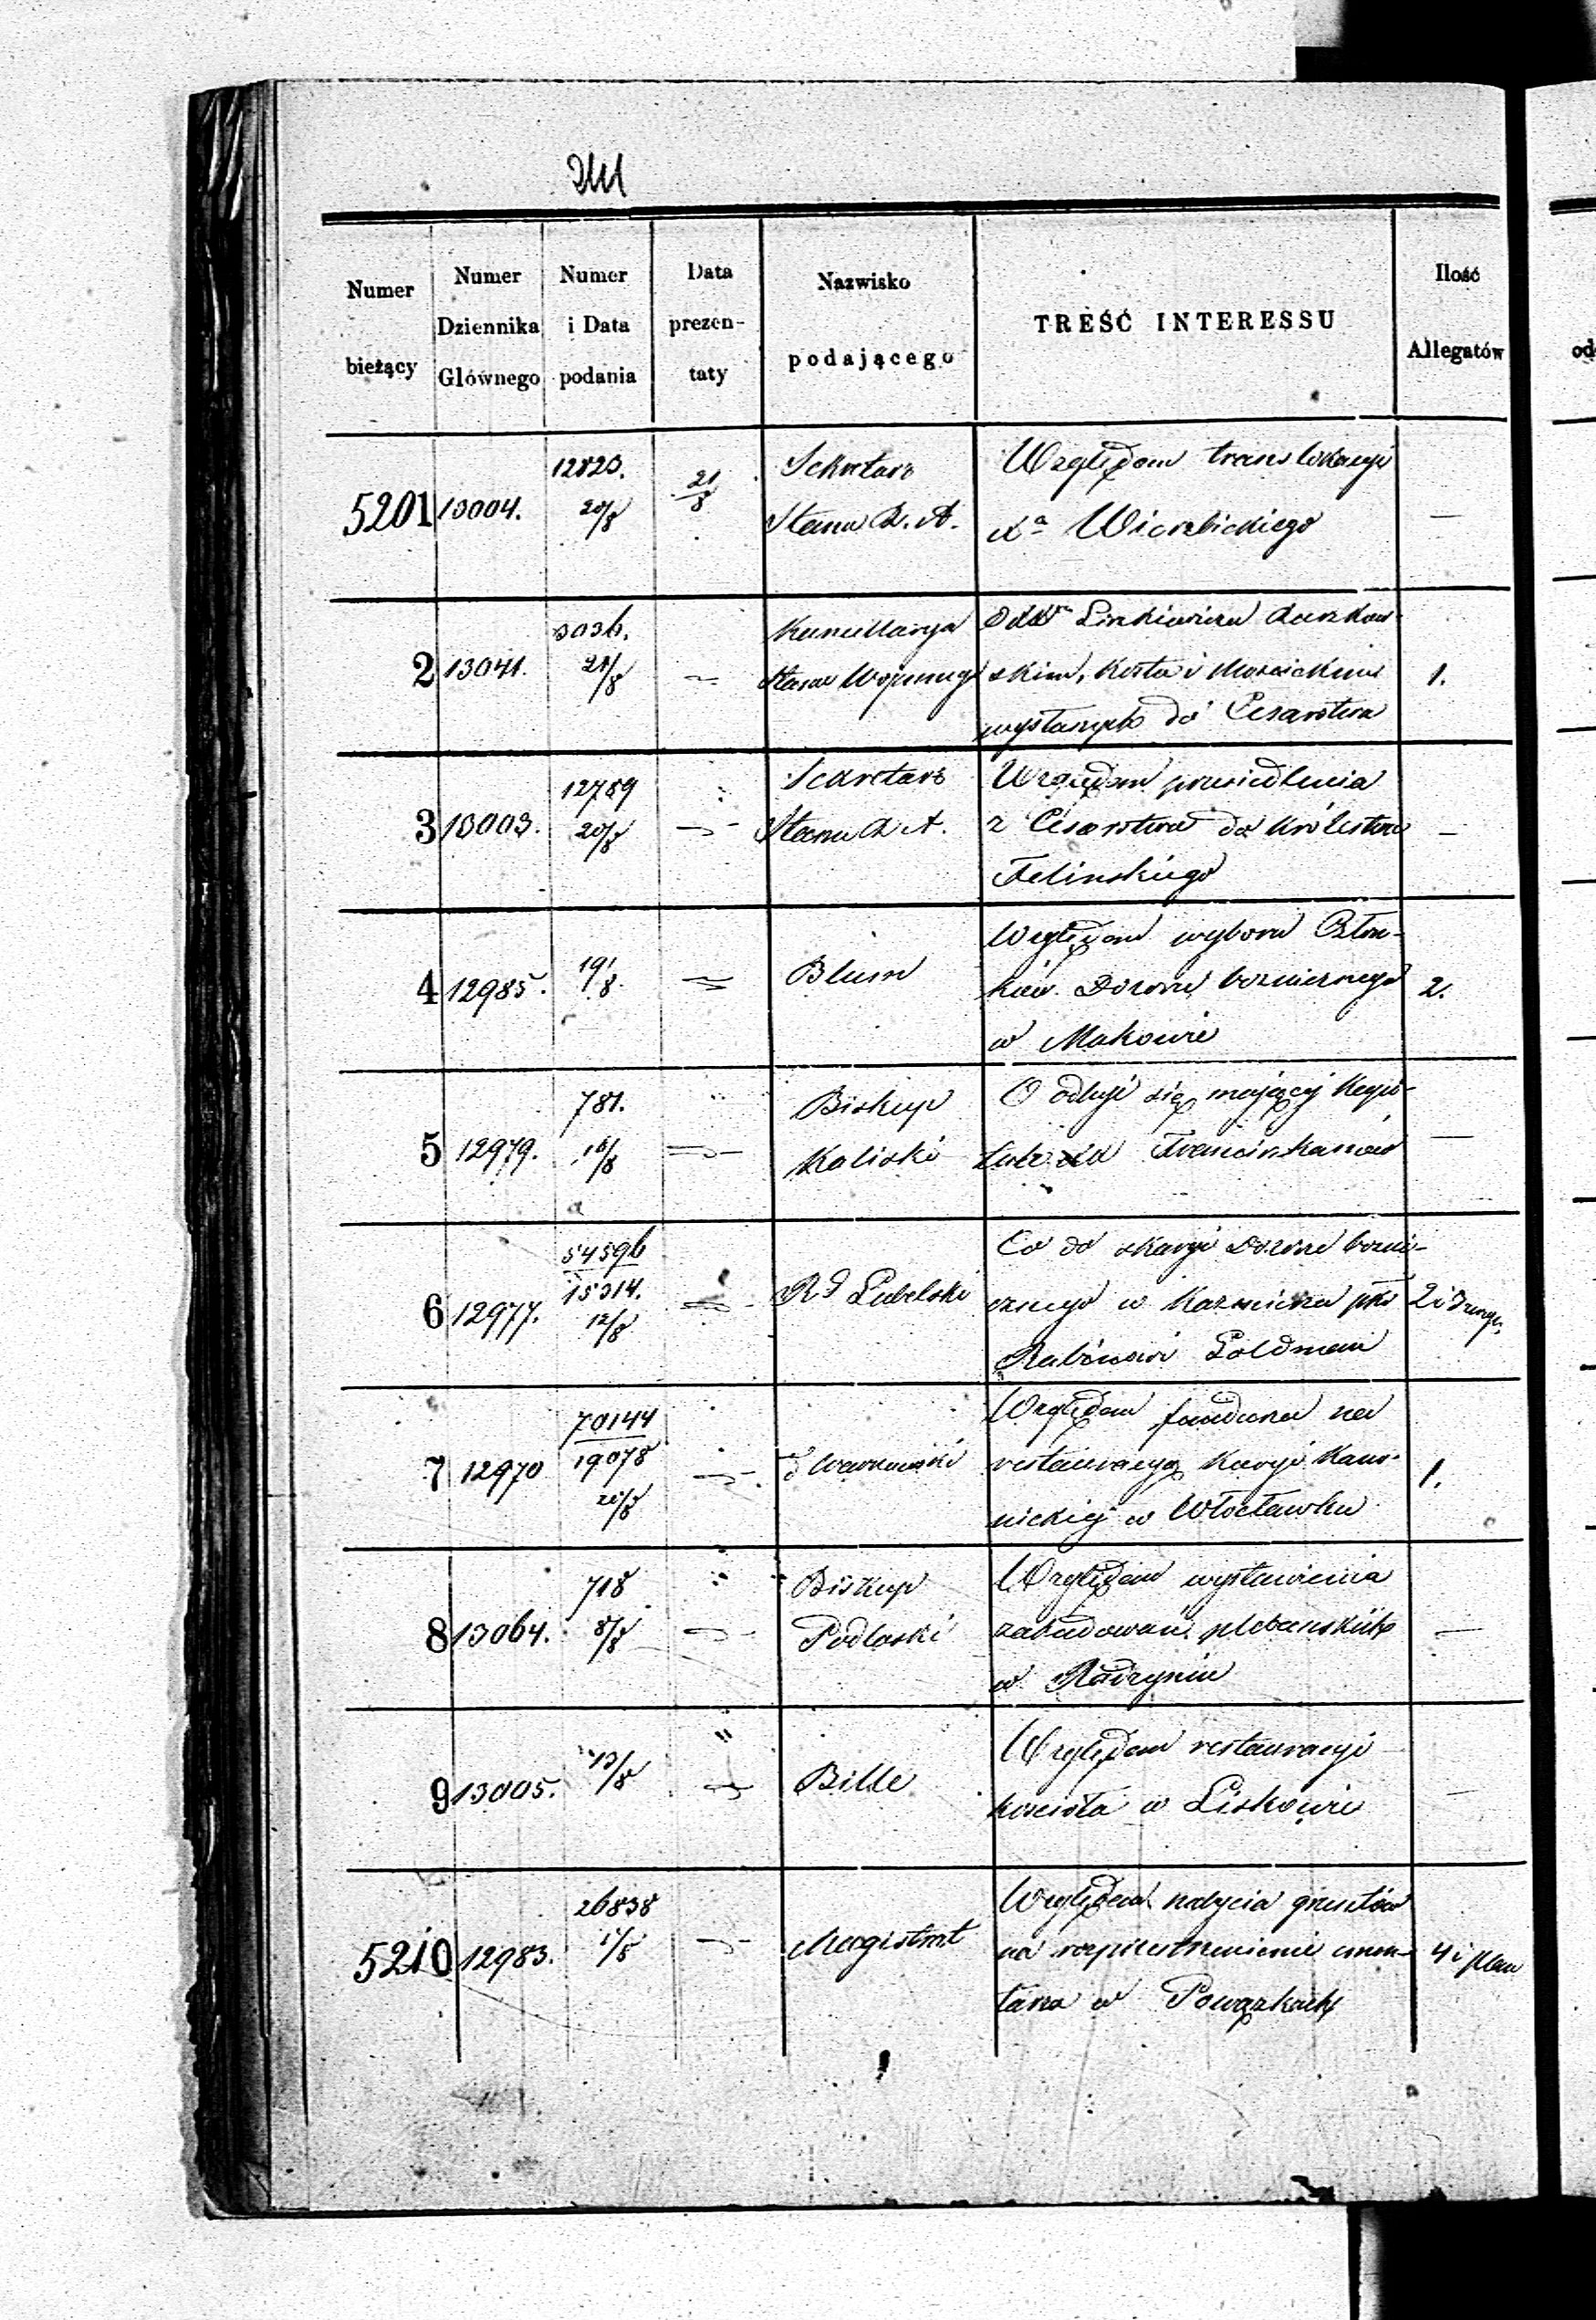 Numer bieżący
Numer Dziennika Głównego
Numer i Data podania
Data prezen- taty
Nazwisko podającego
TREŚĆ INTERESSU
Ilość Allegatów
5201 13004. 12823. 20/8 21/8 Sekretarz Stanu K. A. Względem translokacyi
Xa Wierzbickiego —
2 13041. 3036. 21/8 Kancellarya Stanu
skim, Kosta i
wysłanych do Cesarstwa 1.
3 13003. 12789 20/8 Sekretarz Stanu K A. Względem przesiedlenia
z Cesarstwa do Królestwa
Felinskiego —
4 12985. 19/8. Blum Względem wyboru Człon-
ków Dozoru bożnicznego
w Makowie 2.
5 12979. 781. 16/8 Biskup Kaliski O odbyć się mającej Kapi-
tule Franciszkanów —
6 12977. 54596 15314. 12/8 Rd Lubelski Co do skargi Dozoru bożni-
cznego w Kazmierzu pko
Rabinowi Goldman 2 i 3
7 12970 70144 19078 20/8 d Warszawski Względem funduszu na
restauracyą Kuryi Kano-
nickiej w Włocławku 1.
8 13064. 718 8/8 Biskup Podlaski Względem wystawienia
zabudowań plebanskich
w Radzyniu —
9 13005. 13/8 Bille Względem restauracyi
kościoła w Liskowie —
5210 12983. 26838 Magistrat Względem nabycia gruntów
na rozprzestrzenienie cmen-
tarza w Powązkach 4 i plan